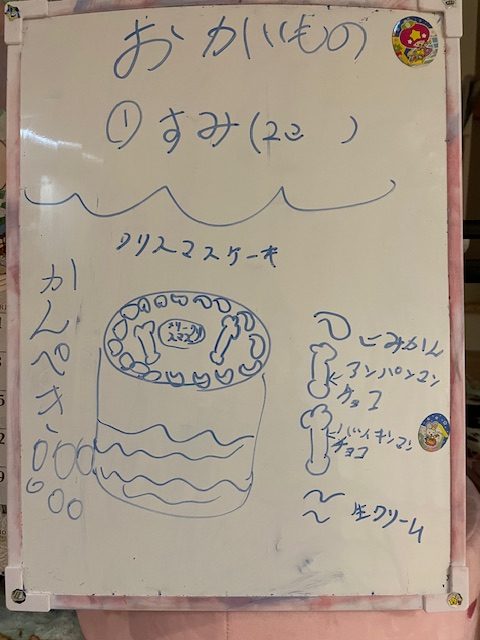 おかいもの
① すみ(2こ )
クリスマスケーキ
メリークリ
スマス
かんぺき、
←みかん
←アンパンマン
チョコ
←バイキンマン
チョコ
生クリーム